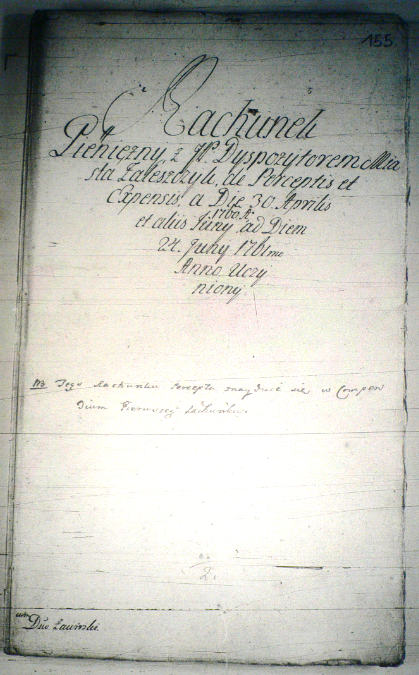 155.
Rachunek
Pieniężny z JP. Dyspozytorem Mia
sta Zaleszczyk, de Perceptis et
Expensis, a Die 30. Aprilis
1760 A.
et aliis ad Diem
24. Juny 1761mo
Anno Uczy
niony.
NB Tego Rachunku Percepta znayduie się w Compen
dium Pierwszey
2.